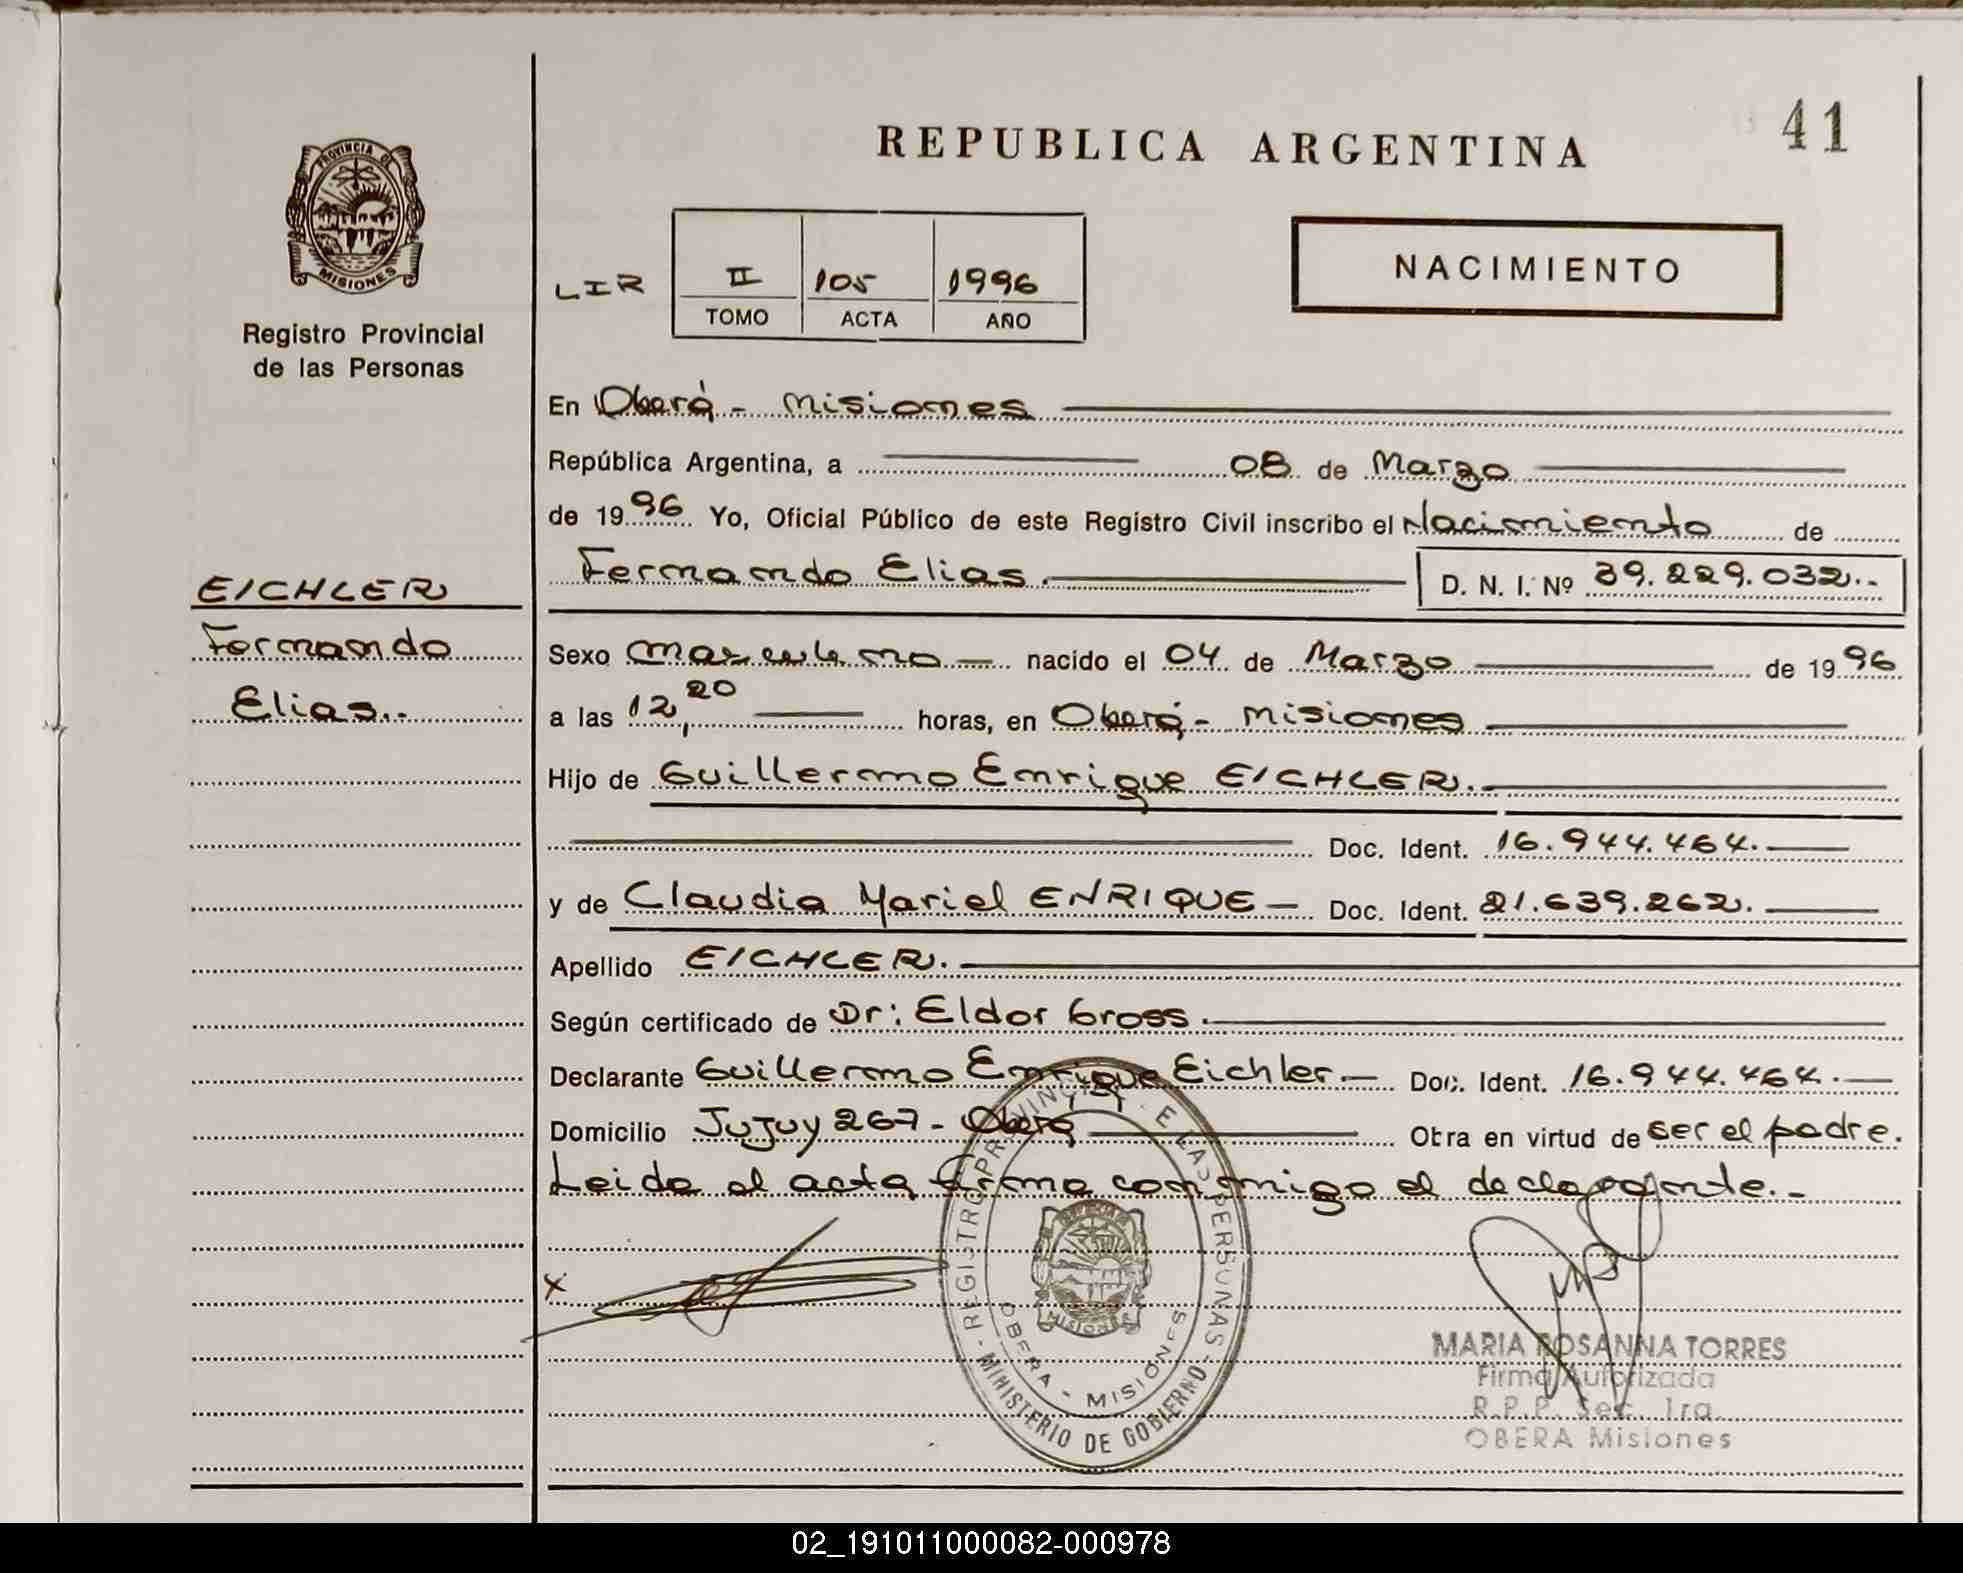 REPUBLICA ARGENTINA
41
PROVINCIA DE
MISIONES
Registro Provincial
de las Personas
LIR
II 105 1996
TOMO ACTA AÑO
NACIMIENTO
En Oberá - Misiones
República Argentina, a 08 de Marzo
de 1996 Yo, Oficial Público de este Registro Civil inscribo el Nacimiento de
Fernando Elias. D. N. I. Nº 39.229.032.-
EICHLER
Fernando
Elias.-
Sexo masculino nacido el 04 de Marzo de 1996
a las 12,20 horas, en Oberá - Misiones
Hijo de Guillermo Enrique EICHLER.
Doc. Ident. 16.944.464.
y de Claudia Mariel ENRIQUE Doc. Ident. 21.639.262.
Apellido EICHLER.
Según certificado de Dr: Eldor Gross.
Declarante Guillermo Enrique Eichler. Doc. Ident. 16.944.464.
Domicilio Jujuy 267 - Oberá Obra en virtud de ser el padre.
Leida el acta firma conmigo el declarante.-
x
REGISTRO PROVINCIAL DE LAS PERSONAS
MINISTERIO DE GOBIERNO
OBERA - MISIONES
MISIONES
MARIA ROSANNA TORRES
Firma Autorizada
R.P.P. Sec. 1ra.
OBERA Misiones
02_191011000082-000978